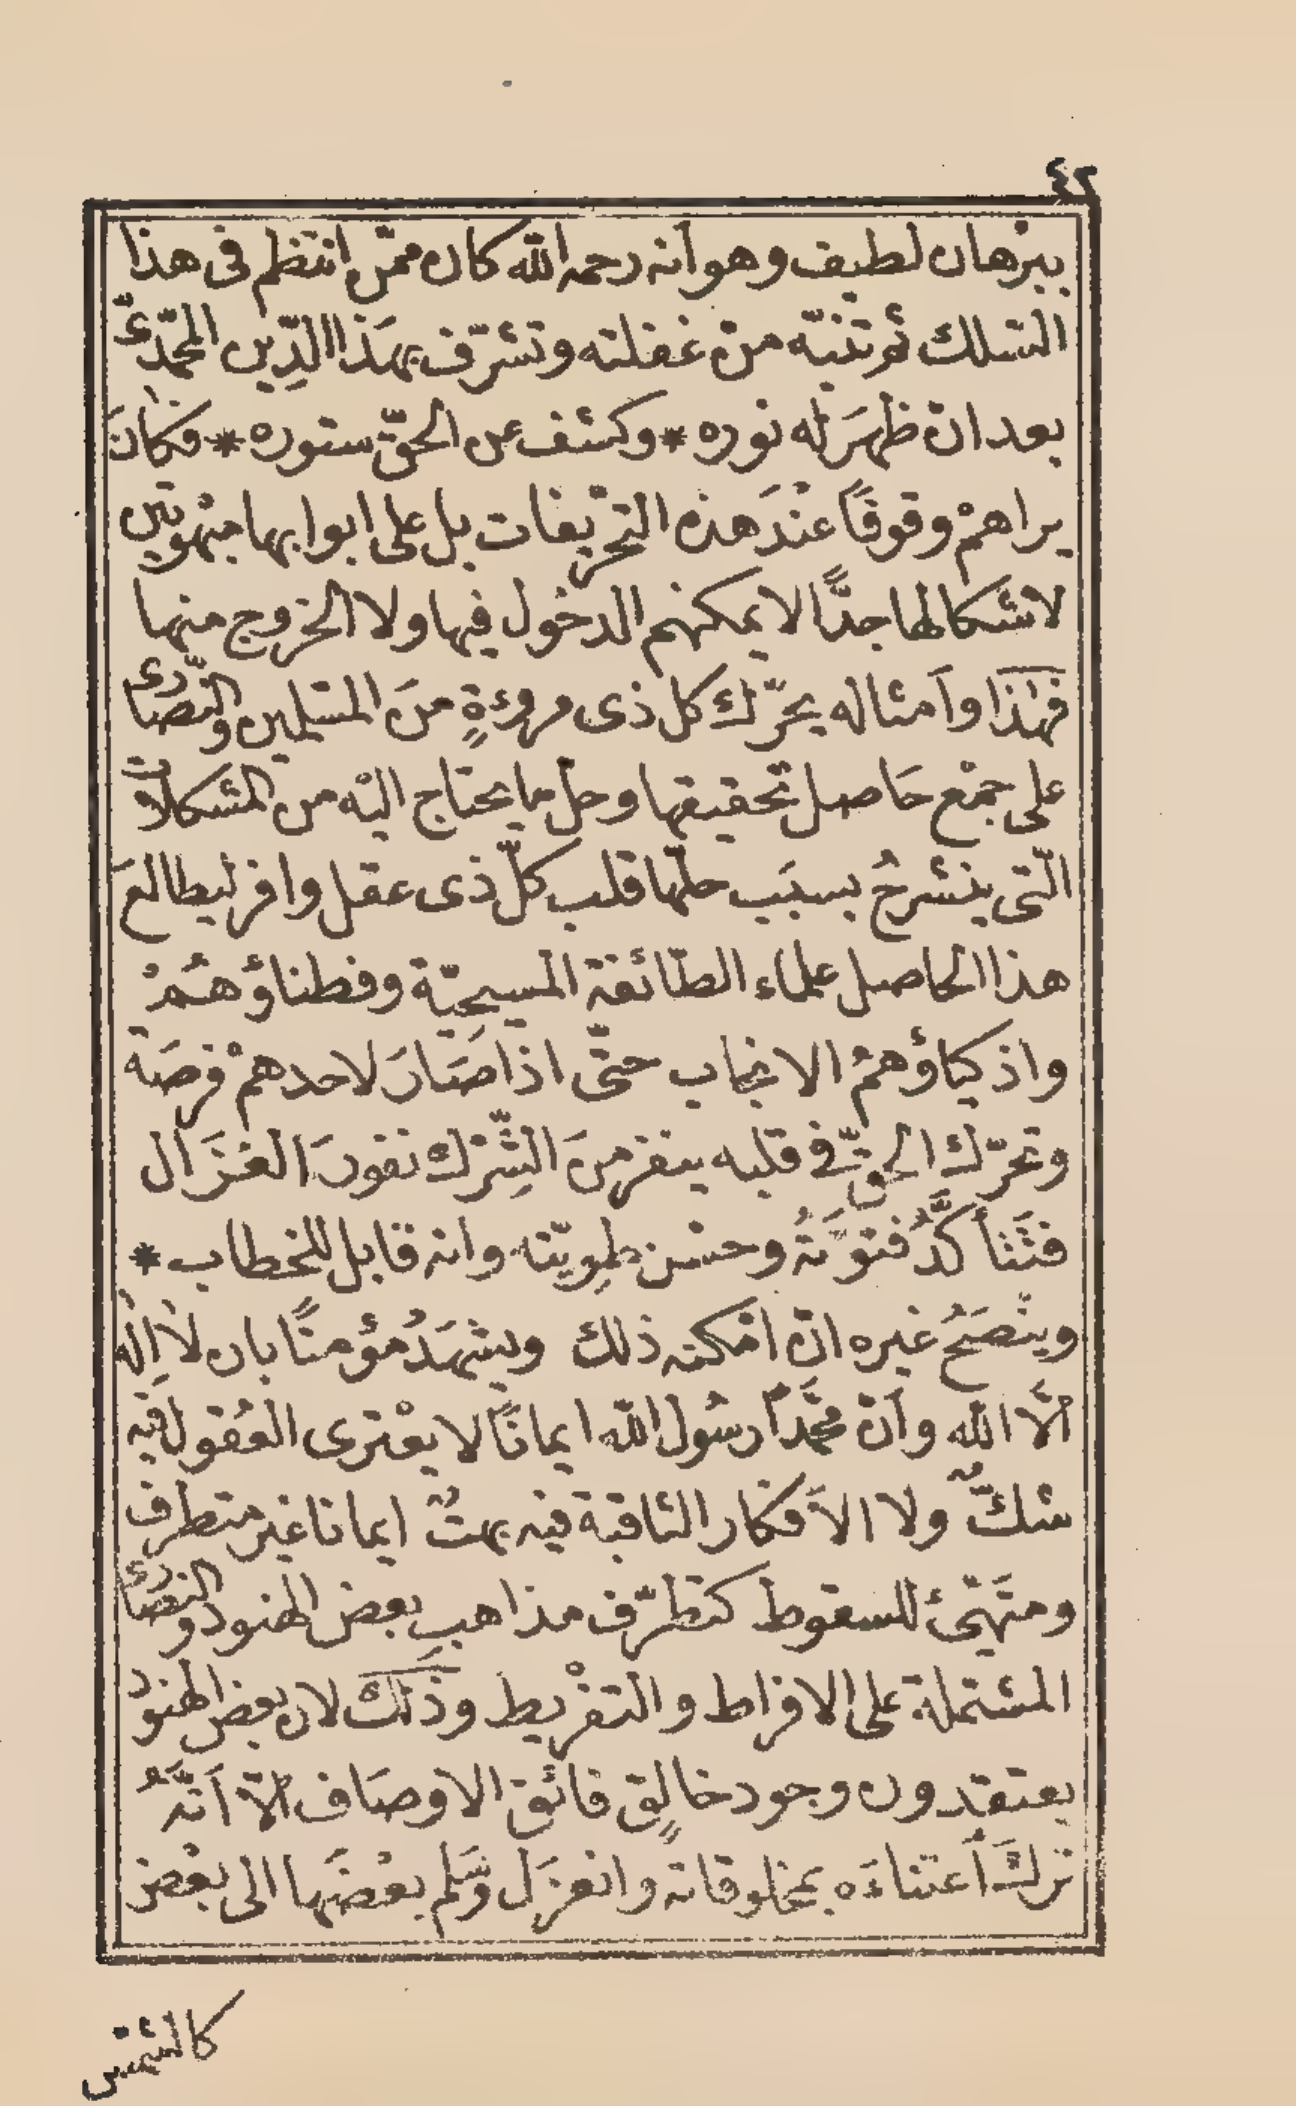 ٤٢
ببرْهان لطيف وهو أنه رحمه الله كان ممّن انتظم فى هذا
السّلك ثم تنبّه منْ غفلته وتشرّف بهَذا الدِّين المحمّدىّ
بعد انْ ظهَر له نوره * وكشف عن الحقّ ستوره * فكانَ
يراهمْ وقوفًا عنْدَ هذه التحْريفات بل على ابوابها مبْهوتين
لاشكالها جدًّا لا يمكنهم الدخول فيها ولا الخروج منها
فهٰذا وأمثاله يحرّك كل ذى مروءةٍ منَ المسْلمين والنّصَارى
على جمْع حَاصل تحقيقها وحلّ ما يحتاج اليْه من المشكلات
الّتى ينشرحُ بسبَب حلّها قلب كلّ ذى عقل وافر ليطالعَ
هذا الحاصل علماء الطّائفة المسيحيّة وفطناؤهُمْ
واذكياؤهمُ الانجاب حتّى اذا صَارَ لاحدهمْ فرصَة
وتحرّك الحقّ فى قلبه ينفر منَ الشّرْك نفورَ الغَزَال
فتَتأكَّدُ فتوّتهُ وحسْن طويّته وانه قابل للخطاب *
وينْصَحُ غيره انْ امْكنه ذلك ويشهَدُ مؤمنًا بان لا اله
الّا الله وأنّ محمَّدًا رسُول الله ايمانًا لا يعْترى العُقول فيه
شكٌّ ولا الأفكار الثاقبة فيه بهتٌ ايمانا غير متطرف
ومتَهيّئ للسقوط كتطرّف مذاهب بعض الهنود والنصَارى
المشتملة على الافراط والتفْريط وذلك لان بعض الهنود
يعتقدون وجود خالقٍ فائق الاوصَاف الّا أنّهُ
تركَ أعتناءَه بمخلوقاته وانعزَل وسَلم بعْضهَا الى بعْض
كالشمْس